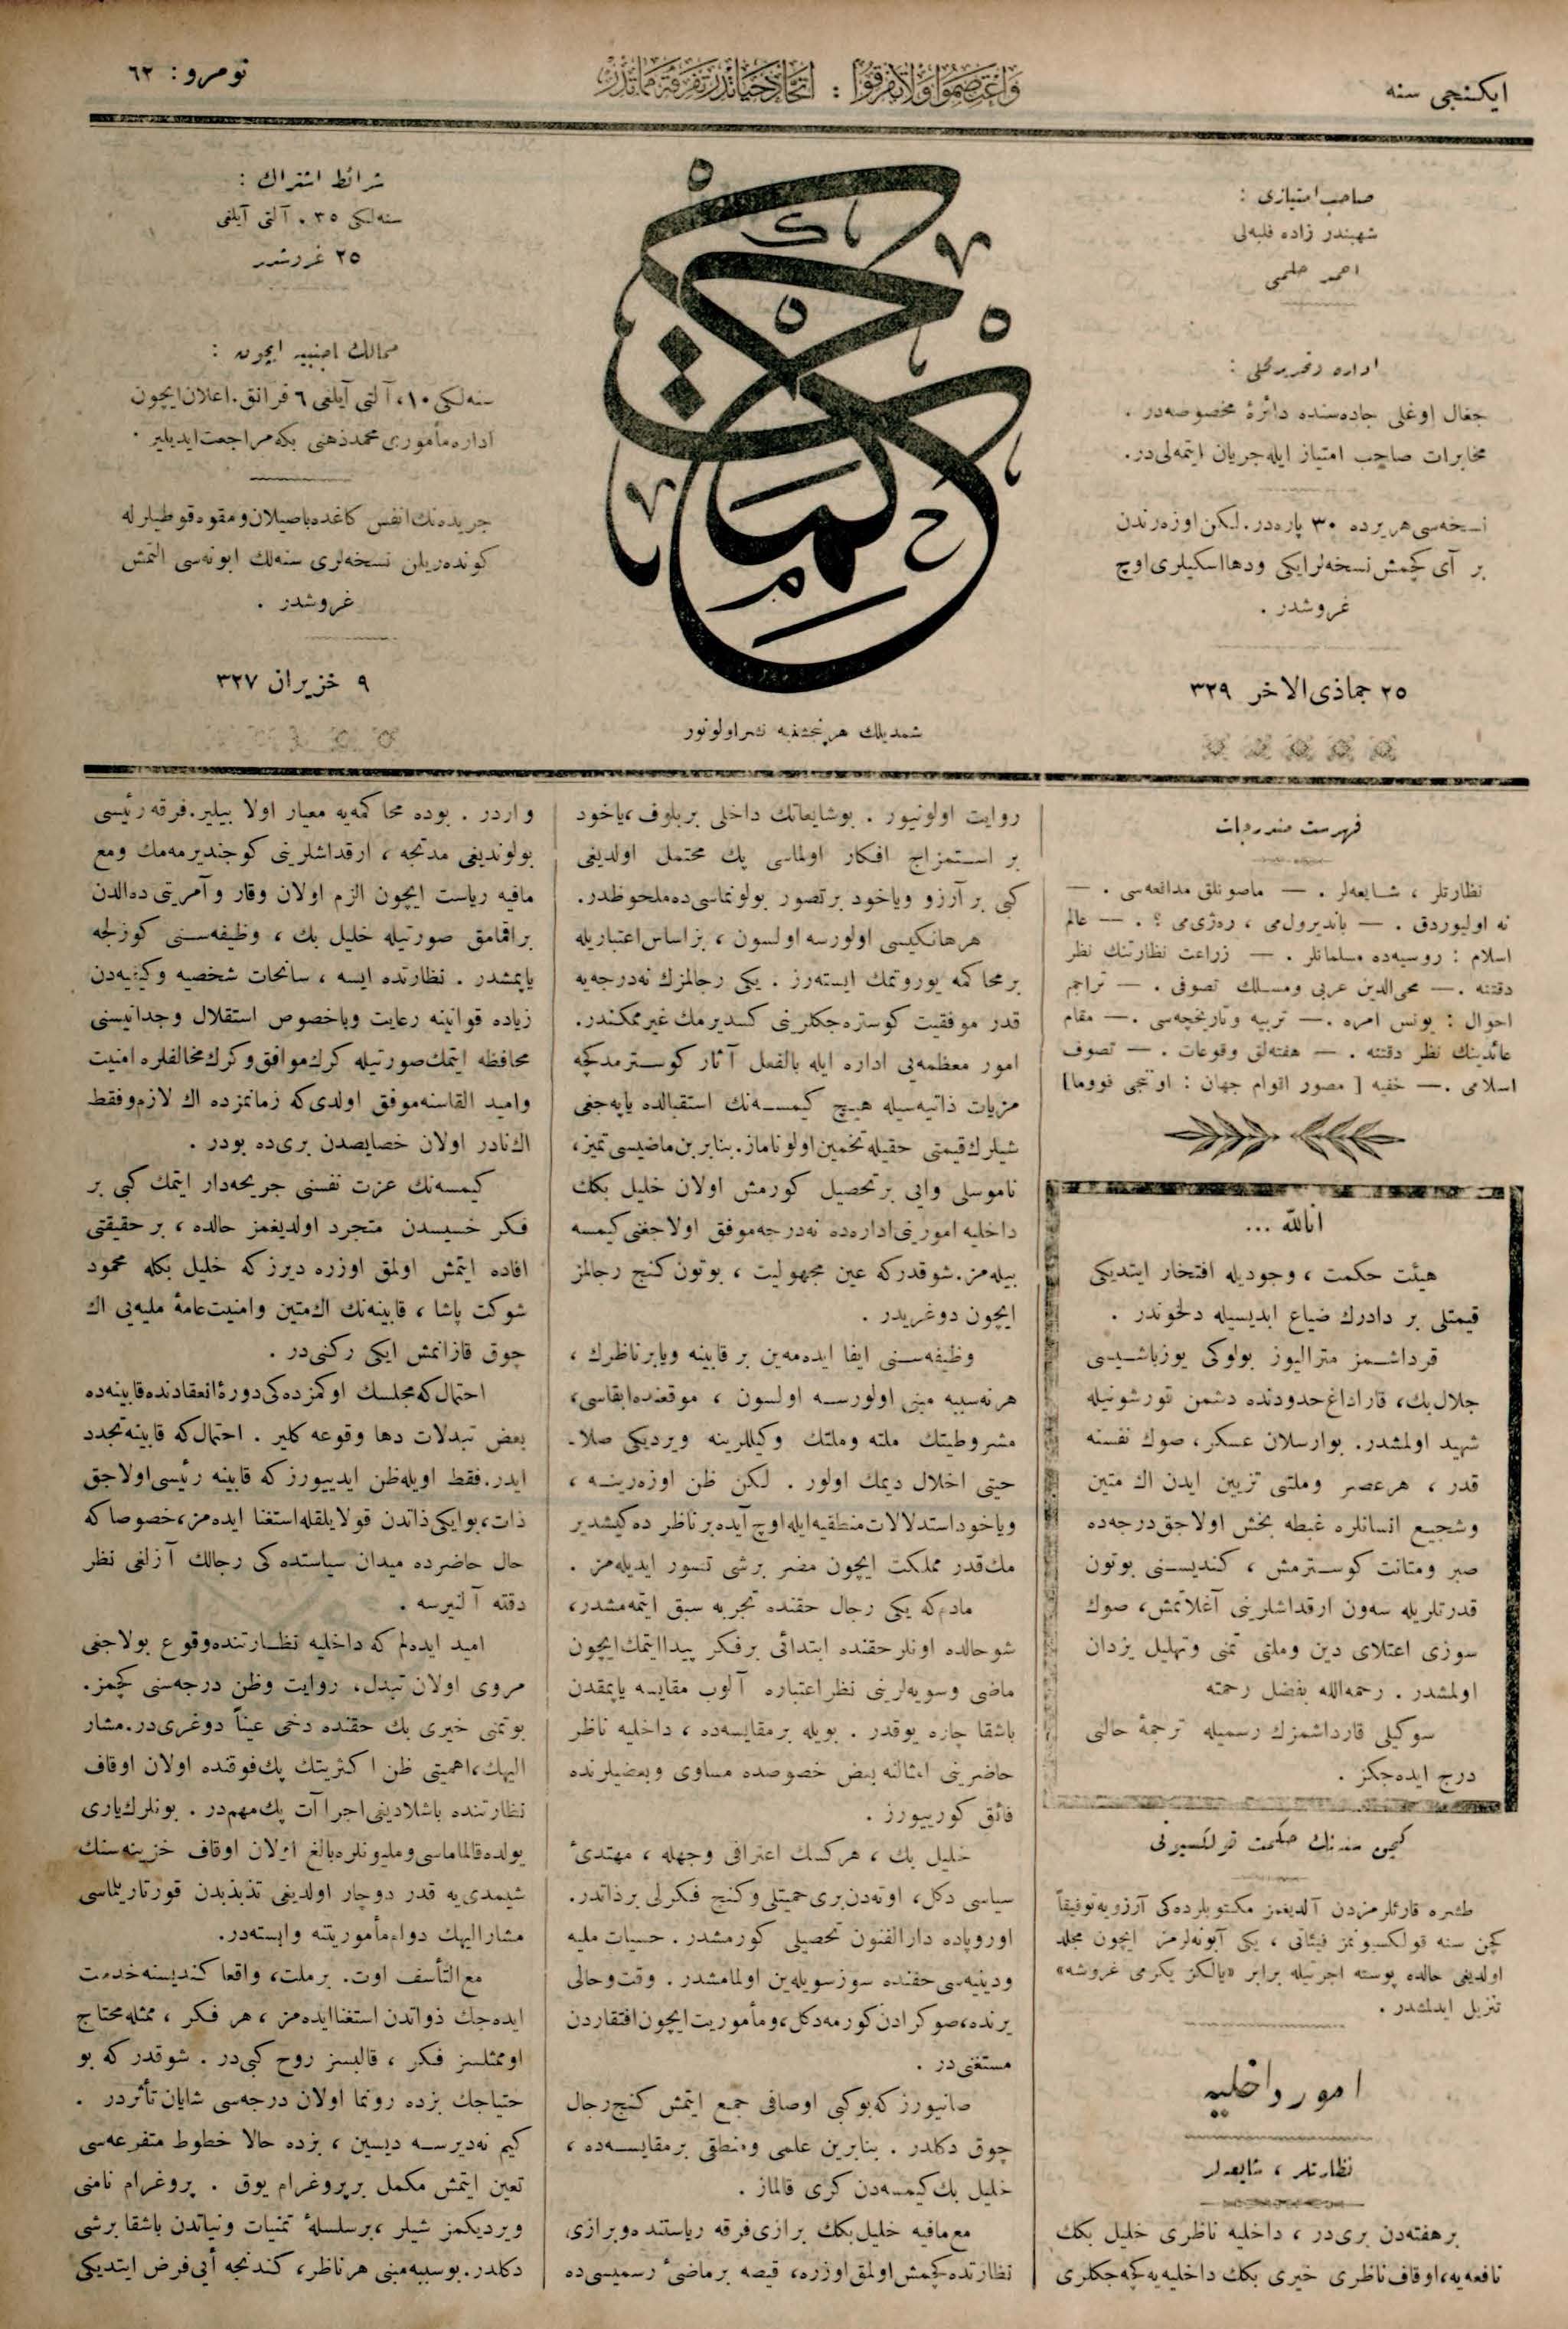 ایكنجی سنه
واعتصموا ولا تفرقوا : اتحاد حیاتدر تفرقه مماتدر
نومرو : ٦٢
صاحب امتیازی :
شهبندر زاده فلبه‌لی
احمد حلمی
اداره وتحریر محلی :
جغال اوغلی جاده‌سنده دائرهٔ مخصوصه‌در .
مخابرات صاحب امتیاز ایله جریان ایتمه‌لی‌در.
نسخه‌سی هر یرده ٣٠ پاره‌در. لكن اوزه‌رندن
بر آی كچمش نسخه‌لر ایكی ودها اسكیلری اوچ
غروشدر .
٢٥ جماذی‌الاخر ٣٢٩
حكمت
شمدیلك هر پنجشنبه نشر اولونور
شرائط اشتراك :
سنه‌لكی ٣٥ ، آلتی آیلغی
٢٥ غروشدر
ممالك اجنبیه ایچون :
سنه‌لكی ١٠، آلتی آیلغی ٦ فرانق. اعلان ایچون
اداره مأموری محمد ذهنی بكه مراجعت ایدیلیر .
جریده‌نك انفس كاغده باصیلان ومقوه قوطیلرله
كونده‌ریلن نسخه‌لری سنه‌لك ابونه‌سی التمش
غروشدر .
٩ خزیران ٣٢٧
فهرست مندرجات
نظارتلر ، شایعه‌لر . — ماصونلق مدافعه‌سی . —
نه اولیوردق . — باندیرول‌می ، ره‌ژی‌می ؟ . — عالم
اسلام : روسیه‌ده مسلمانلر . — زراعت نظارتنك نظر
دقتنه . — محی‌الدین عربی ومسلك تصوفی . — تراجم
احوال : یونس امره . — تربیه وتاریخچه‌سی . — مقام
عائدینك نظر دقتنه . — هفته‌لق وقوعات . — تصوف
اسلامی . — خفیه [ مصور اقوام جهان : اوتجی فووما]
انالله ...
هیئت حكمت ، وجودیله افتخار ایتدیكی
قیمتلی بر دادرك ضیاع ابدیسیله دلخوندر .
قرداشمز مترالیوز بولوكی یوزباشیسی
جلال بك، قاراداغ حدودنده دشمن قورشونیله
شهید اولمشدر. بوارسلان عسكر، صوك نفسنه
قدر ، هر عصر وملتی تزیین ایدن اك متین
وشجیع انسانلره غبطه بخش اولاجق درجه‌ده
صبر ومتانت كوسترمش ، كندیسنی بوتون
قدرتلریله سه‌ون ارقداشلرینی آغلاتمش، صوك
سوزی اعتلای دین وملتی تمنی وتهلیل یزدان
اولمشدر . رحمه‌الله بفضل رحمته
سوكیلی قارداشمزك رسمیله ترجمهٔ حالنی
درج ایده‌جكز .
كچن سنه‌نك حكمت قوللكسیونی
طشره قارئلرمزدن آلدیغمز مكتوبلرده‌كی آرزویه توفیقاً
كچن سنه قولكسیونمز فیئاتی ، یكی آبونه‌لرمز ایچون مجلد
اولدیغی حالده پوسته اجرتیله برابر «یالكز یكرمی غروشه»
تنزیل ایدلمشدر .
امور داخلیه
نظارتلر ، شایعه‌لر
بر هفته‌دن بری‌در ، داخلیه ناظری خلیل بكك
نافعه‌یه، اوقاف ناظری خیری بكك داخلیه‌یه كچه‌جكلری
روایت اولونیور . بوشایعاتك داخلی بر بلوف ، یاخود
بر استمزاج افكار اولماسی پك محتمل اولدیغی
كبی بر آرزو ویاخود بر تصور بولونماسی ده ملحوظدر.
هر هانكیسی اولورسه اولسون ، بز اساس اعتباریله
بر محاكمه یوروتمك ایسته‌رز . یكی رجالمزك نه‌درجه‌یه
قدر موفقیت كوستره‌جكلرینی كسدیرمك غیر ممكندر.
امور معظمه‌یی اداره ایله بالفعل آثار كوسترمدكچه
مزیات ذاتیه‌سیله هیچ كیمسه‌نك استقبالده یاپه‌جغی
شیلرك قیمتی حقیله تخمین اولوناماز. بنابرین ماضیسی تمیز،
ناموسلی وایی بر تحصیل كورمش اولان خلیل بكك
داخلیه امورینی اداره‌ده نه‌درجه موفق اولاجغنی كیمسه
بیله‌مز. شو قدر كه عین مجهولیت ، بوتون كنج رجالمز
ایچون دوغریدر .
وظیفه‌سنی ایفا ایده‌مه‌ین بر قابینه ویا بر ناظرك ،
هر نه سببه مبنی اولورسه اولسون ، موقعنده ابقاسی،
مشروطیتك ملته وملتك وكیللرینه ویردیكی صلا-
حیتی اخلال دیمك اولور . لكن ظن اوزه‌رینه ،
ویاخود استدلالات منطقیه ایله اوچ آیده بر ناظر ده‌كیشدیر
مك قدر مملكت ایچون مضر بر شی تصور ایدیله‌مز .
مادم كه یكی رجال حقنده تجربه سبق ایتمه‌مشدر،
شو حالده اونلر حقنده ابتدائی بر فكر پیدا ایتمك ایچون
ماضی وسویه‌لرینی نظر اعتباره آلوب مقایسه یاپمقدن
باشقا چاره یوقدر . بویله بر مقایسه‌ده ، داخلیه ناظر
حاضرینی امثالنه بعض خصوصده مساوی وبعضیلرنده
فائق كورییورز .
خلیل بك ، هر كسك اعترافی وجهله ، مهتدیٔ
سیاسی دكل، اوته‌دن بری حمیتلی وكنج فكرلی بر ذاتدر.
اوروپاده دارالفنون تحصیلی كورمشدر . حسیات ملیه
ودینیه‌سی حقنده سوز سویله‌ین اولمامشدر . وقت وحالی
یرنده، صوكرادن كورمه دكل، ومأموریت ایچون افتقاردن
مستغنی‌در .
صانیورز كه بو كبی اوصافی جمع ایتمش كنج رجال
چوق دكلدر . بنابرین علمی ومنطقی بر مقایسه‌ده ،
خلیل بك كیمسه‌دن كری قالماز .
مع مافیه خلیل بكك بر ازی فرقه ریاستنده وبر ازی
نظارتده كچمش اولمق اوزره، قیصه بر ماضیٔ رسمیسی ده
واردر . بوده محاكمه‌یه معیار اولا بیلیر. فرقه رئیسی
بولوندیغی مدتجه ، ارقداشلرینی كوجندیرمه‌مك ومع
مافیه ریاست ایچون الزم اولان وقار وآمریتی ده الدن
براقمامق صورتیله خلیل بك ، وظیفه‌سنی كوزلجه
یاپمشدر . نظارتده ایسه ، سانحات شخصیه وكیفیه‌دن
زیاده قوانینه رعایت وباخصوص استقلال وجدانیسنی
محافظه ایتمك صورتیله كرك موافق وكرك مخالفلره امنیت
وامید القاسنه موفق اولدی كه زمانمزده اك لازم وفقط
اك نادر اولان خصایصدن بری ده بودر .
كیمسه‌نك عزت نفسنی جریحه‌دار ایتمك كبی بر
فكر خسیسدن متجرد اولدیغمز حالده ، بر حقیقتی
افاده ایتمش اولمق اوزره دیرز كه خلیل بكله محمود
شوكت پاشا ، قابینه‌نك اك متین وامنیت عامهٔ ملیه‌یی اك
چوق قازانمش ایكی ركنی‌در .
احتمال كه مجلسك اوكمزده‌كی دورهٔ انعقادنده قابینه‌ده
بعض تبدلات دها وقوعه كلیر . احتمال كه قابینه تجدد
ایدر. فقط اویله ظن ایدییورز كه قابینه رئیسی اولاجق
ذات، بو ایكی ذاتدن قولایلقله استغنا ایده‌مز، خصوصا كه
حال حاضرده میدان سیاستده كی رجالك آزلغی نظر
دقته آلنیرسه .
امید ایده‌لم كه داخلیه نظارتنده وقوع بولاجغی
مروی اولان تبدل، روایت وظن درجه‌سنی كچمز.
بو تمنی خیری بك حقنده دخی عیناً دوغری‌در. مشار
الیهك، اهمیتی ظن اكثریتك پك فوقنده اولان اوقاف
نظارتنده باشلادیغی اجراآت پك مهم‌در . بونلرك یاری
یولده قالماماسی وملیونلره بالغ اولان اوقاف خزینه‌سنك
شیمدی‌یه قدر دوچار اولدیغی تذبذبدن قورتاریلماسی
مشارالیهك دوام مأموریتنه وابسته‌در.
مع التأسف اوت. بر ملت، واقعا كندیسنه خدمت
ایده‌جك ذواتدن استغنا ایده‌مز ، هر فكر ، ممثله محتاج
او ممثلسز فكر ، قالبسز روح كبی‌در . شو قدر كه بو
حتیاجك بزده رونما اولان درجه‌سی شایان تأثردر .
كیم نه‌دیرسه دیسین ، بزده حالا خطوط متفرعه‌سی
تعین ایتمش مكمل بر پروغرام یوق . پروغرام نامنی
ویردیكمز شیلر ، بر سلسلهٔ تمنیات ونیاتدن باشقا بر شی
دكلدر. بو سببه مبنی هر ناظر، كندنجه أیی فرض ایتدیكی